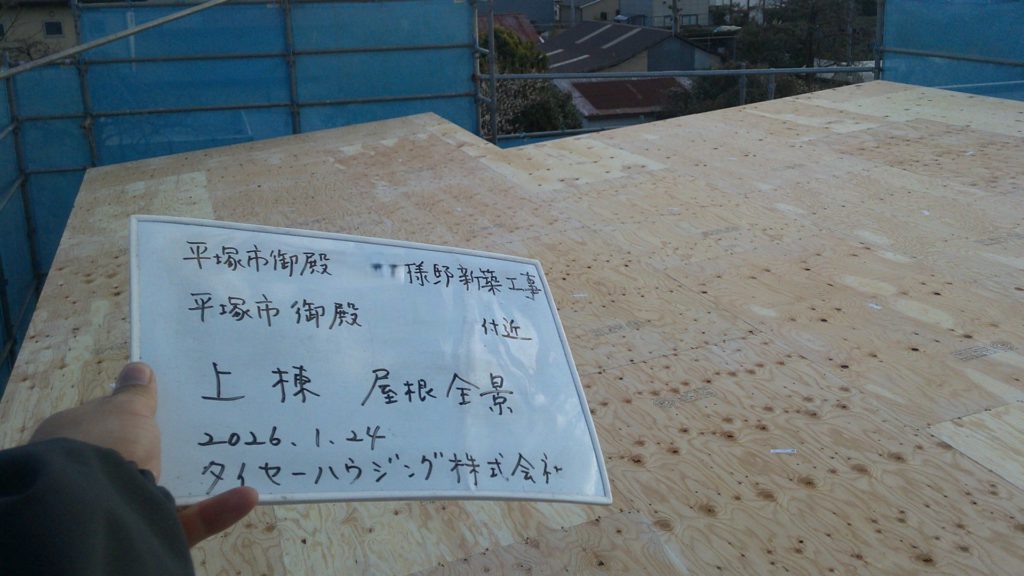 平塚市御殿 様邸新築工事
平塚市御殿 付近
上棟 屋根全景
2026.1.24
タイセーハウジング株式会社